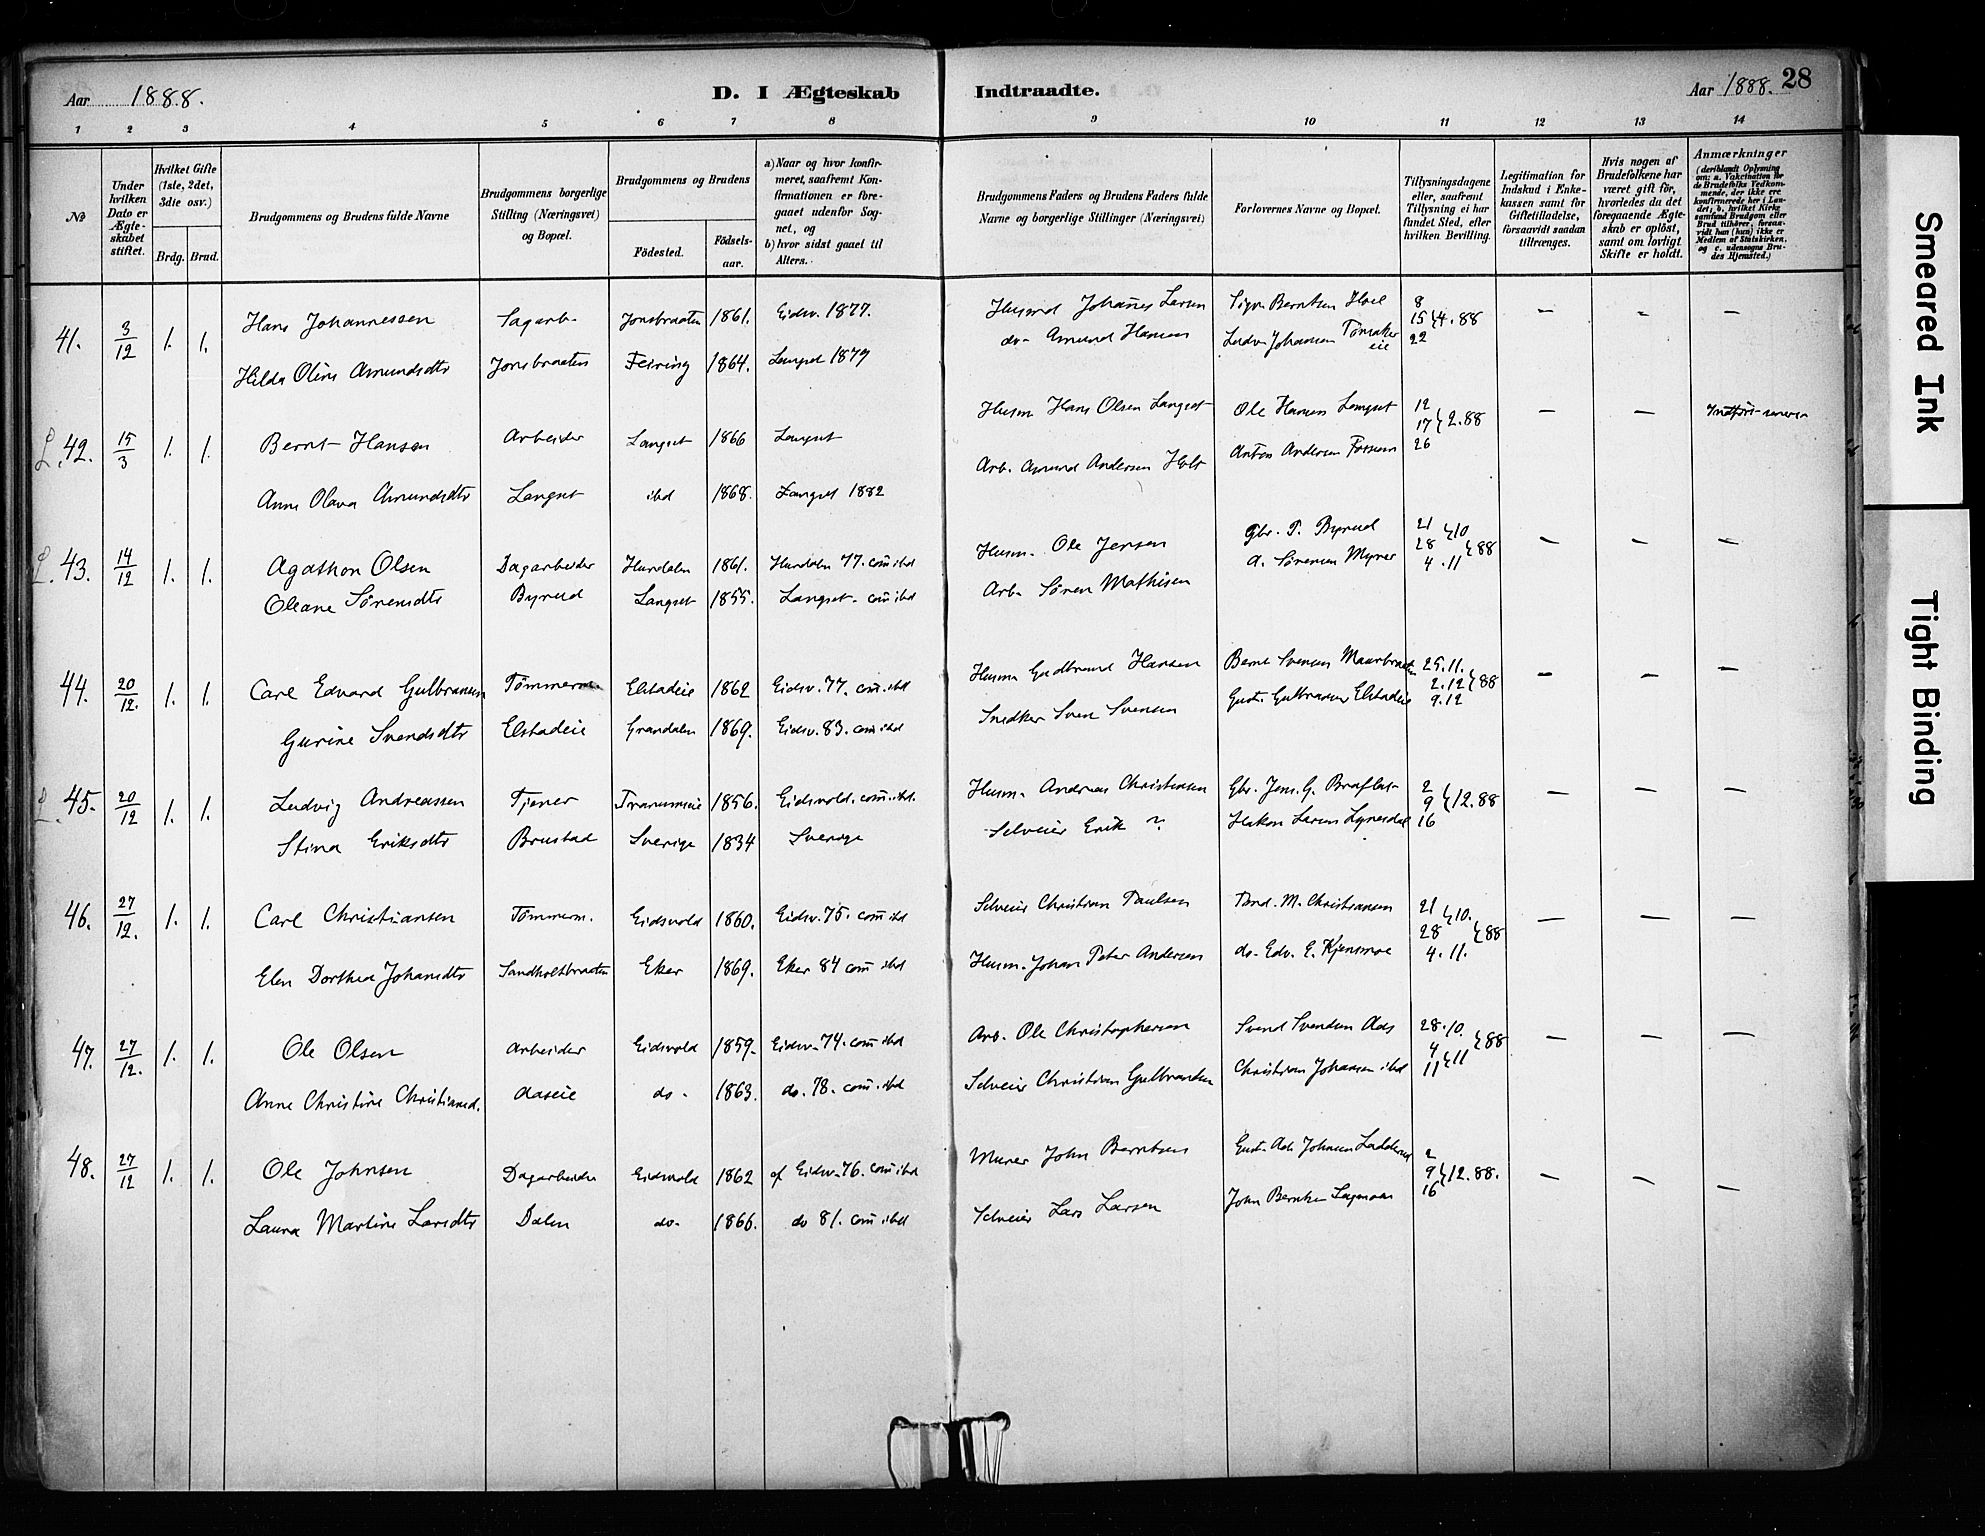 Aar 1888. D. I Ægteskab Indtraadte. Aar 1888. 28
1 2 3 4 5 6 7 8 9 10 11 12 13 14
No
Under hvilken Dato er Ægteskabet stiftet.
Hvilket Gifte (1ste, 2det, 3die osv.)
Brdg. Brud.
Brudgommens og Brudens fulde Navne
Brudgommens borgerlige Stilling (Næringsvei) og Bopæl.
Brudgommens og Brudens
Fødested. Fødselsaar.
a) Naar og hvor konfirmeret, saafremt Konfirmationen er foregaaet udenfor Sognet, og
b) hvor sidst gaaet til Alters.
Brudgommens Faders og Brudens Faders fulde Navne og borgerlige Stillinger (Næringsvei)
Forlovernes Navne og Bopæl.
Tillysningsdagene eller, saafremt Tillysning ei har fundet Sted, efter hvilken Bevilling.
Legitimation for Indskud i Enkekassen samt for Giftetilladelse, forsaavidt saadan tiltrænges.
Hvis nogen af Brudefolkene har været gift før, hvorledes da det foregaaende Ægteskab er opløst, samt om lovligt Skifte er holdt.
Anmærkninger (deriblandt Oplysning om: a. Vakcination for de Brudefolks Vedkommende, der ikke ere konfirmerede her i Landet; b. hvilket Kirkesamfund Brudgom eller Brud tilhører, forsaavidt han (hun) ikke er Medlem af Statskirken, og c. udensogns Brudes Hjemsted.)
41. 3/12 1. 1. Hans Johannessen Sagarb. Jonsbraaten 1861. Eidsv. 1877. Husmd Johannes Larsen Sigv. Berntsen Hoel 8 15 22 }4.88 - - -
Hilda Oline Amundsdtr Jonsbraaten Feiring 1864. Langset 1879 do- Amund Hansen Ludv. Johansen Tønsakereie
L. 42. 15/3 1. 1. Bernt Hansen Arbeider Langset 1866 Langset Husm Hans Olsen Langset Ole Hansen Langset 12 17 26 }2.88 - -
Anne Olava Amundsdtr Langset ibd 1868. Langset 1882 Arb. Amund Andersen Holt Anton Andersen
L. 43. 14/12 1. 1. Agathon Olsen Dagarbeider Hurdalen 1861. Hurdalen 77. com ibd Husm. Ole Jensen Gbr. P. Byrud 21 28 }10 4.11 }88 - - -
Oleane Sørensdtr Byrud Langset 1855. Langset. com ibd Arb. Søren Mathisen A. Sørensen Myrer
44. 20/12. 1. 1. Carl Edvard Gulbransen Tømmerm. Elstadeie 1862 Eidsv. 77. com. ibd Husm Gudbrand Hansen Bernt Svensen Maarbraaten 25.11. 2.12 9.12 }88 - - -
Gurine Svendsdtr Elstadeie Grandalen 1869. Eidsv. 83. com ibd Snedker Sven Svensen Gust. Gulbransen Elstadeie
L. 45. 20/12 1. 1. Ludvig Andreassen Tjener 1856. Eidsvold. com. ibd. Husm. Andreas Christensen Gbr. Jens. G. 2 9 16 }12.88 - - -
Stina Eriksdtr Brustad Sverige 1834 Sverige Selveier Erik ? Hakon Larsen
46. 27/12. 1. 1. Carl Christiansen Tømmerm. Eidsvold 1860. Eidsv. 75. com ibd Selveier Christian Paulsen M. Christiansen 21 28 }10. 4.11. }88 - - -
Elen Dorthea Johansdtr Sandholtbraaten Eker 1869. Eker 84 com ibd Husm. Johan Peter Andersen do. Edv. E. Kjensmoe
47. 27/12. 1. 1. Ole Olsen Arbeider Eidsvold 1859. Eidsv. 74. com ibd Arb. Ole Christophersen Svend Svendsen Aas 28.10. 4 11 }11 }88 - - -
Anne Christine Christiansd. Aaseie do- 1863. do. 78. com. ibd Selveier Christian Gulbrandsen Christian Johansen ibd
48. 27/12 1. 1. Ole Johnsen Dagarbeider Eidsvold 1862 af Eidsv. 76. com ibd Murer John Berntsen Gust. Ad. Johansen Ladderud 2 9 16 }12.88. - - -
Laura Martine Larsdtr Dalen do- 1866. do 81. com ibd Selveier Lars Larsen John Berntsen
Smeared Ink
Tight Binding